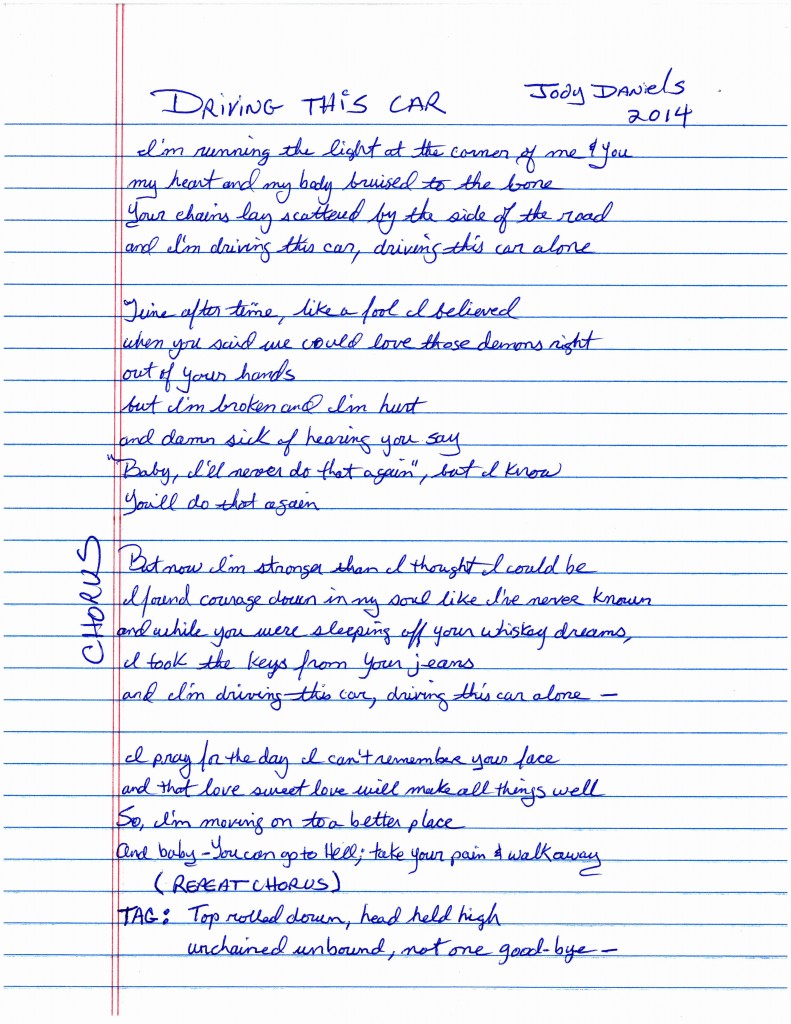 DRIVING THIS CAR
Jody Daniels
2014
I'm running the light at the corner of me & you
my heart and my body bruised to the bone
Your chains lay scattered by the side of the road
and I'm driving this car, driving this car alone
Time after time, like a fool I believed
when you said we could love those demons right
out of your hands
but I'm broken and I'm hurt
and damn sick of hearing you say
"Baby, I'll never do that again", but I know
You'll do that again
CHORUS
But now I'm stronger than I thought I could be
I found courage down in my soul like I've never known
and while you were sleeping off your whiskey dreams,
I took the keys from your jeans
and I'm driving this car, driving this car alone —
I pray for the day I can't remember your face
and that love sweet love will make all things well
So, I'm moving on to a better place
And baby - You can go to Hell; take your pain & walk away
(REPEAT CHORUS)
TAG: Top rolled down, head held high
unchained unbound, not one good-bye —